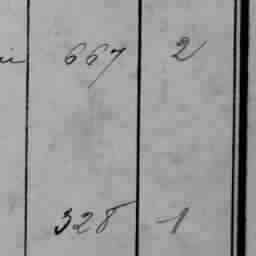 667 2
328 1